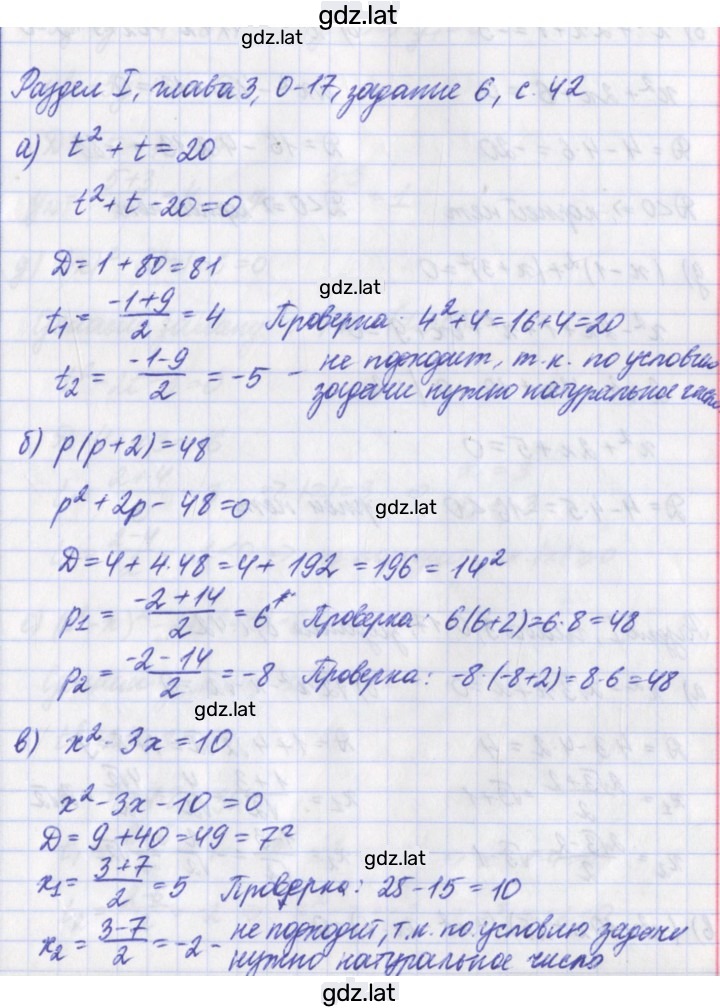 gdz.lat
Раздел I, глава 3, О-17, задание 6, с. 42
а) t² + t = 20
gdz.lat
t² + t - 20 = 0
D = 1 + 80 = 81
gdz.lat
t₁ = (-1+9)/2 = 4 Проверка: 4² + 4 = 16 + 4 = 20
t₂ = (-1-9)/2 = -5 - не подходит, т.к. по условию
задачи нужно натуральное число
gdz.lat
б) p(p+2) = 48
p² + 2p - 48 = 0
gdz.lat
D = 4 + 4·48 = 4 + 192 = 196 = 14²
p₁ = (-2+14)/2 = 6 Проверка: 6(6+2) = 6·8 = 48
p₂ = (-2-14)/2 = -8 Проверка: -8·(-8+2) = 8·6 = 48
gdz.lat
в) x² - 3x = 10
x² - 3x - 10 = 0
D = 9 + 40 = 49 = 7²
gdz.lat
x₁ = (3+7)/2 = 5 Проверка: 25 - 15 = 10
x₂ = (3-7)/2 = -2 - не подходит, т.к. по условию задачи
нужно натуральное число
gdz.lat